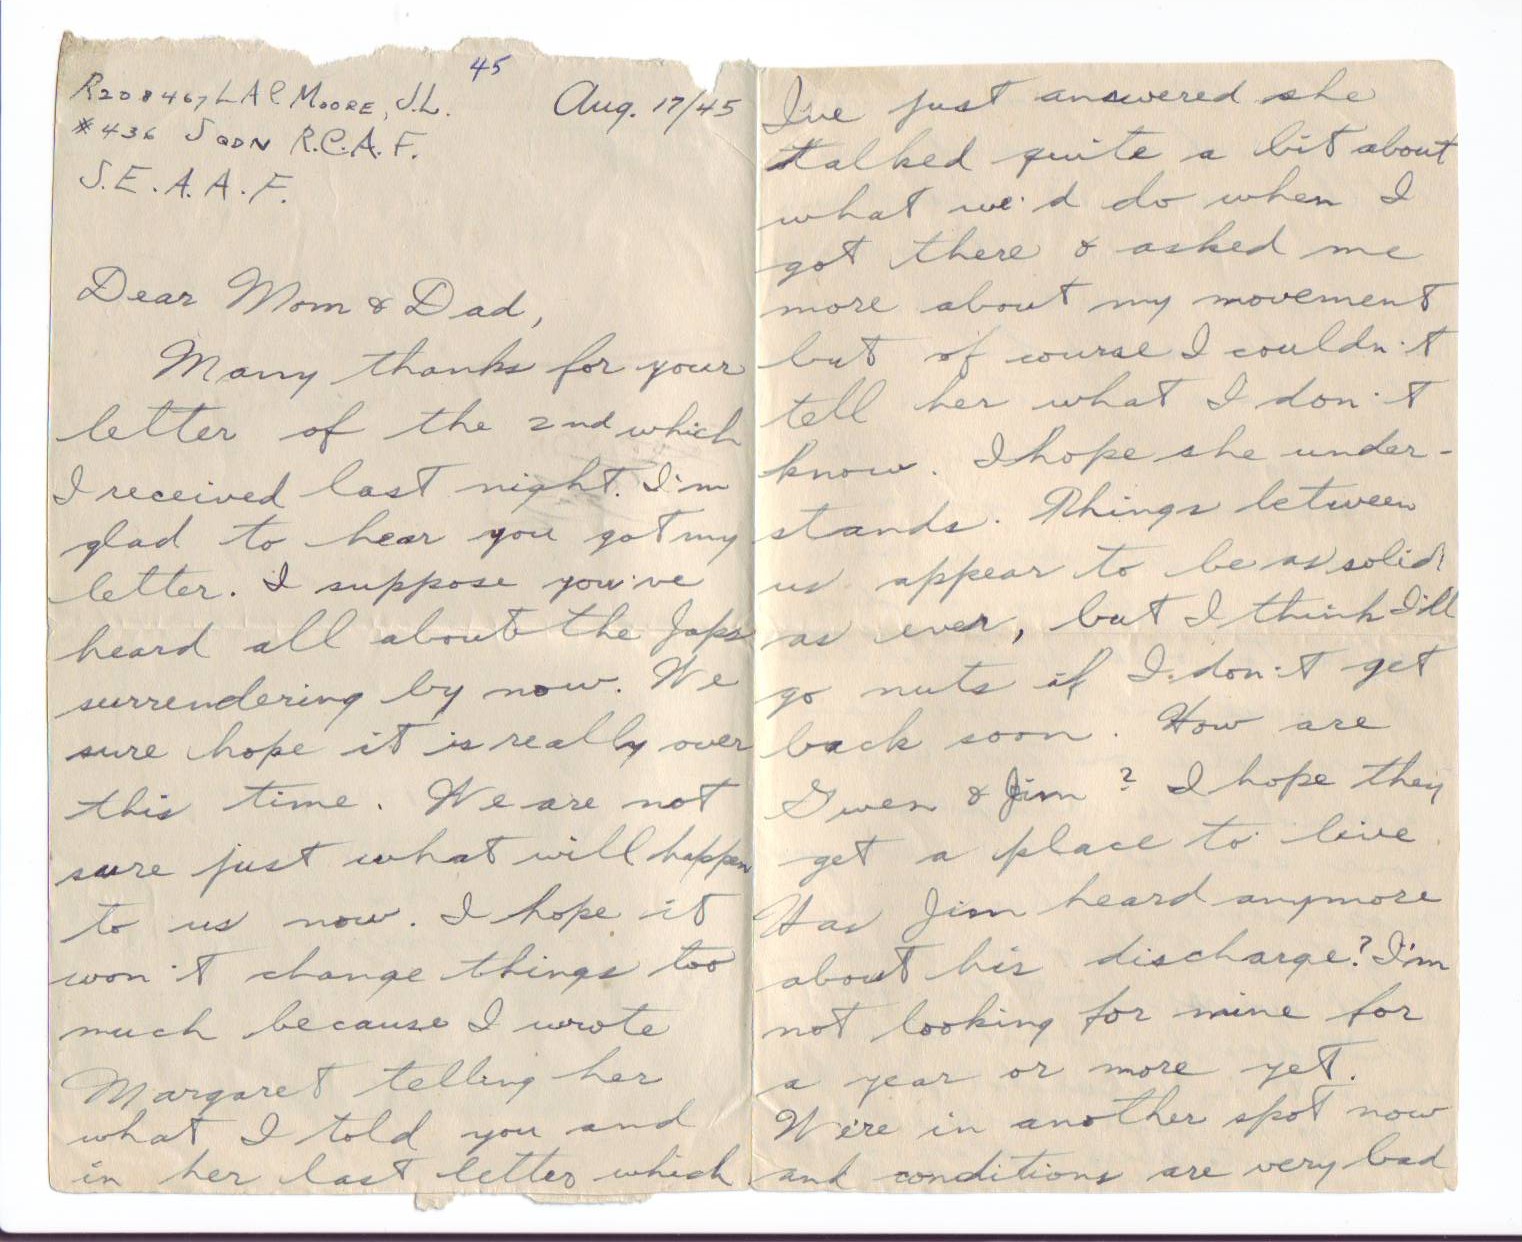 45
R208467 LAC MOORE, J.L.
#436 SQDN R.C.A.F.
S.E.A.A.F.
Aug. 17/45
Dear Mom & Dad,
Many thanks for your
letter of the 2nd which
I received last night. I'm
glad to hear you got my
letter. I suppose you've
heard all about the Japs
surrendering by now. We
sure hope it is really over
this time. We are not
sure just what will happen
to us now. I hope it
won't change things too
much because I wrote
Margaret telling her
what I told you and
in her last letter which
I've just answered she
talked quite a bit about
what we'd do when I
got there & asked me
more about my movement
but of course I couldn't
tell her what I don't
know. I hope she under-
stands. Things between
us appear to be as solid
as ever, but I think I'll
go nuts if I don't get
back soon. How are
Gwen & Jim? I hope they
get a place to live
Has Jim heard anymore
about his discharge? I'm
not looking for mine for
a year or more yet.
We're in another spot now
and conditions are very bad